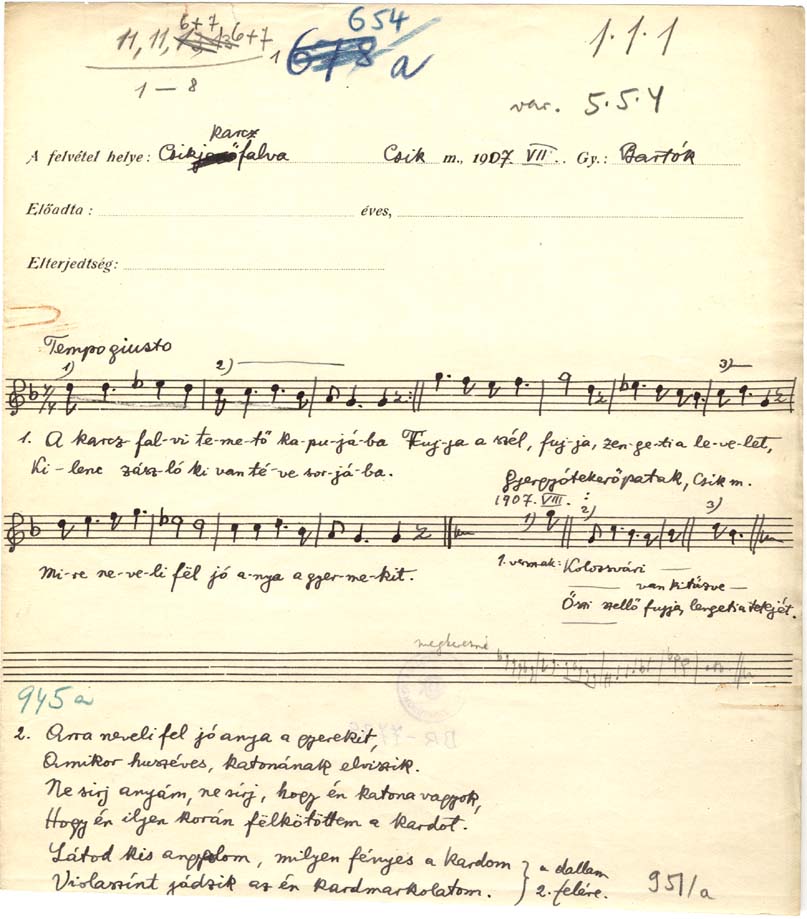 11, 11, 13, 13 6+7 6+7
1 — 8
1 678 a 654
1. 1. 1
var. 5. 5. 4
A felvétel helye: Csikjenőfalva karcz Csik m., 1907. VII. Gy.: Bartók
Előadta: éves,
Elterjedtség:
Tempo giusto
1) 2) 3)
1. A karcz fal-vi te-me-tő ka-pu-já-ba Fuj-ja a szél, fuj-ja, zen-ge-ti a le-ve-let,
Ki-lenc zász-ló ki van té-ve sor-já-ba.
Gyergyótekerőpatak, Csik m.
1907. VIII. :
1) 2) 3)
Mi-re ne-ve-li föl jó a-nya a gyer-me-kit.
1. versszak: Kolozsvári —
— van kitűzve —
Őszi szellő fujja, lengeti a tetejét.
945 a
2. Arra neveli fel jó anya a gyerekit,
Amikor huszéves, katonának elviszik.
Ne sirj anyám, ne sírj, hogy én katona vagyok,
Hogy én iljen korán fëlkötöttem a kardot.
Látod kis angyalom, miljen fényes a kardom } a dallam
Violaszínt jádzik az én kardmarkolatom. } 2. felére.
951/a